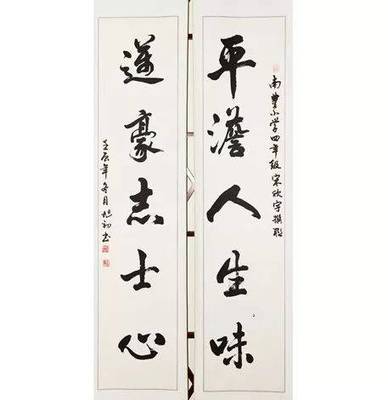 平澹人生味
南豐小学四年级宋欣宇撰联
遒豪志士心
壬辰年冬月旭初书